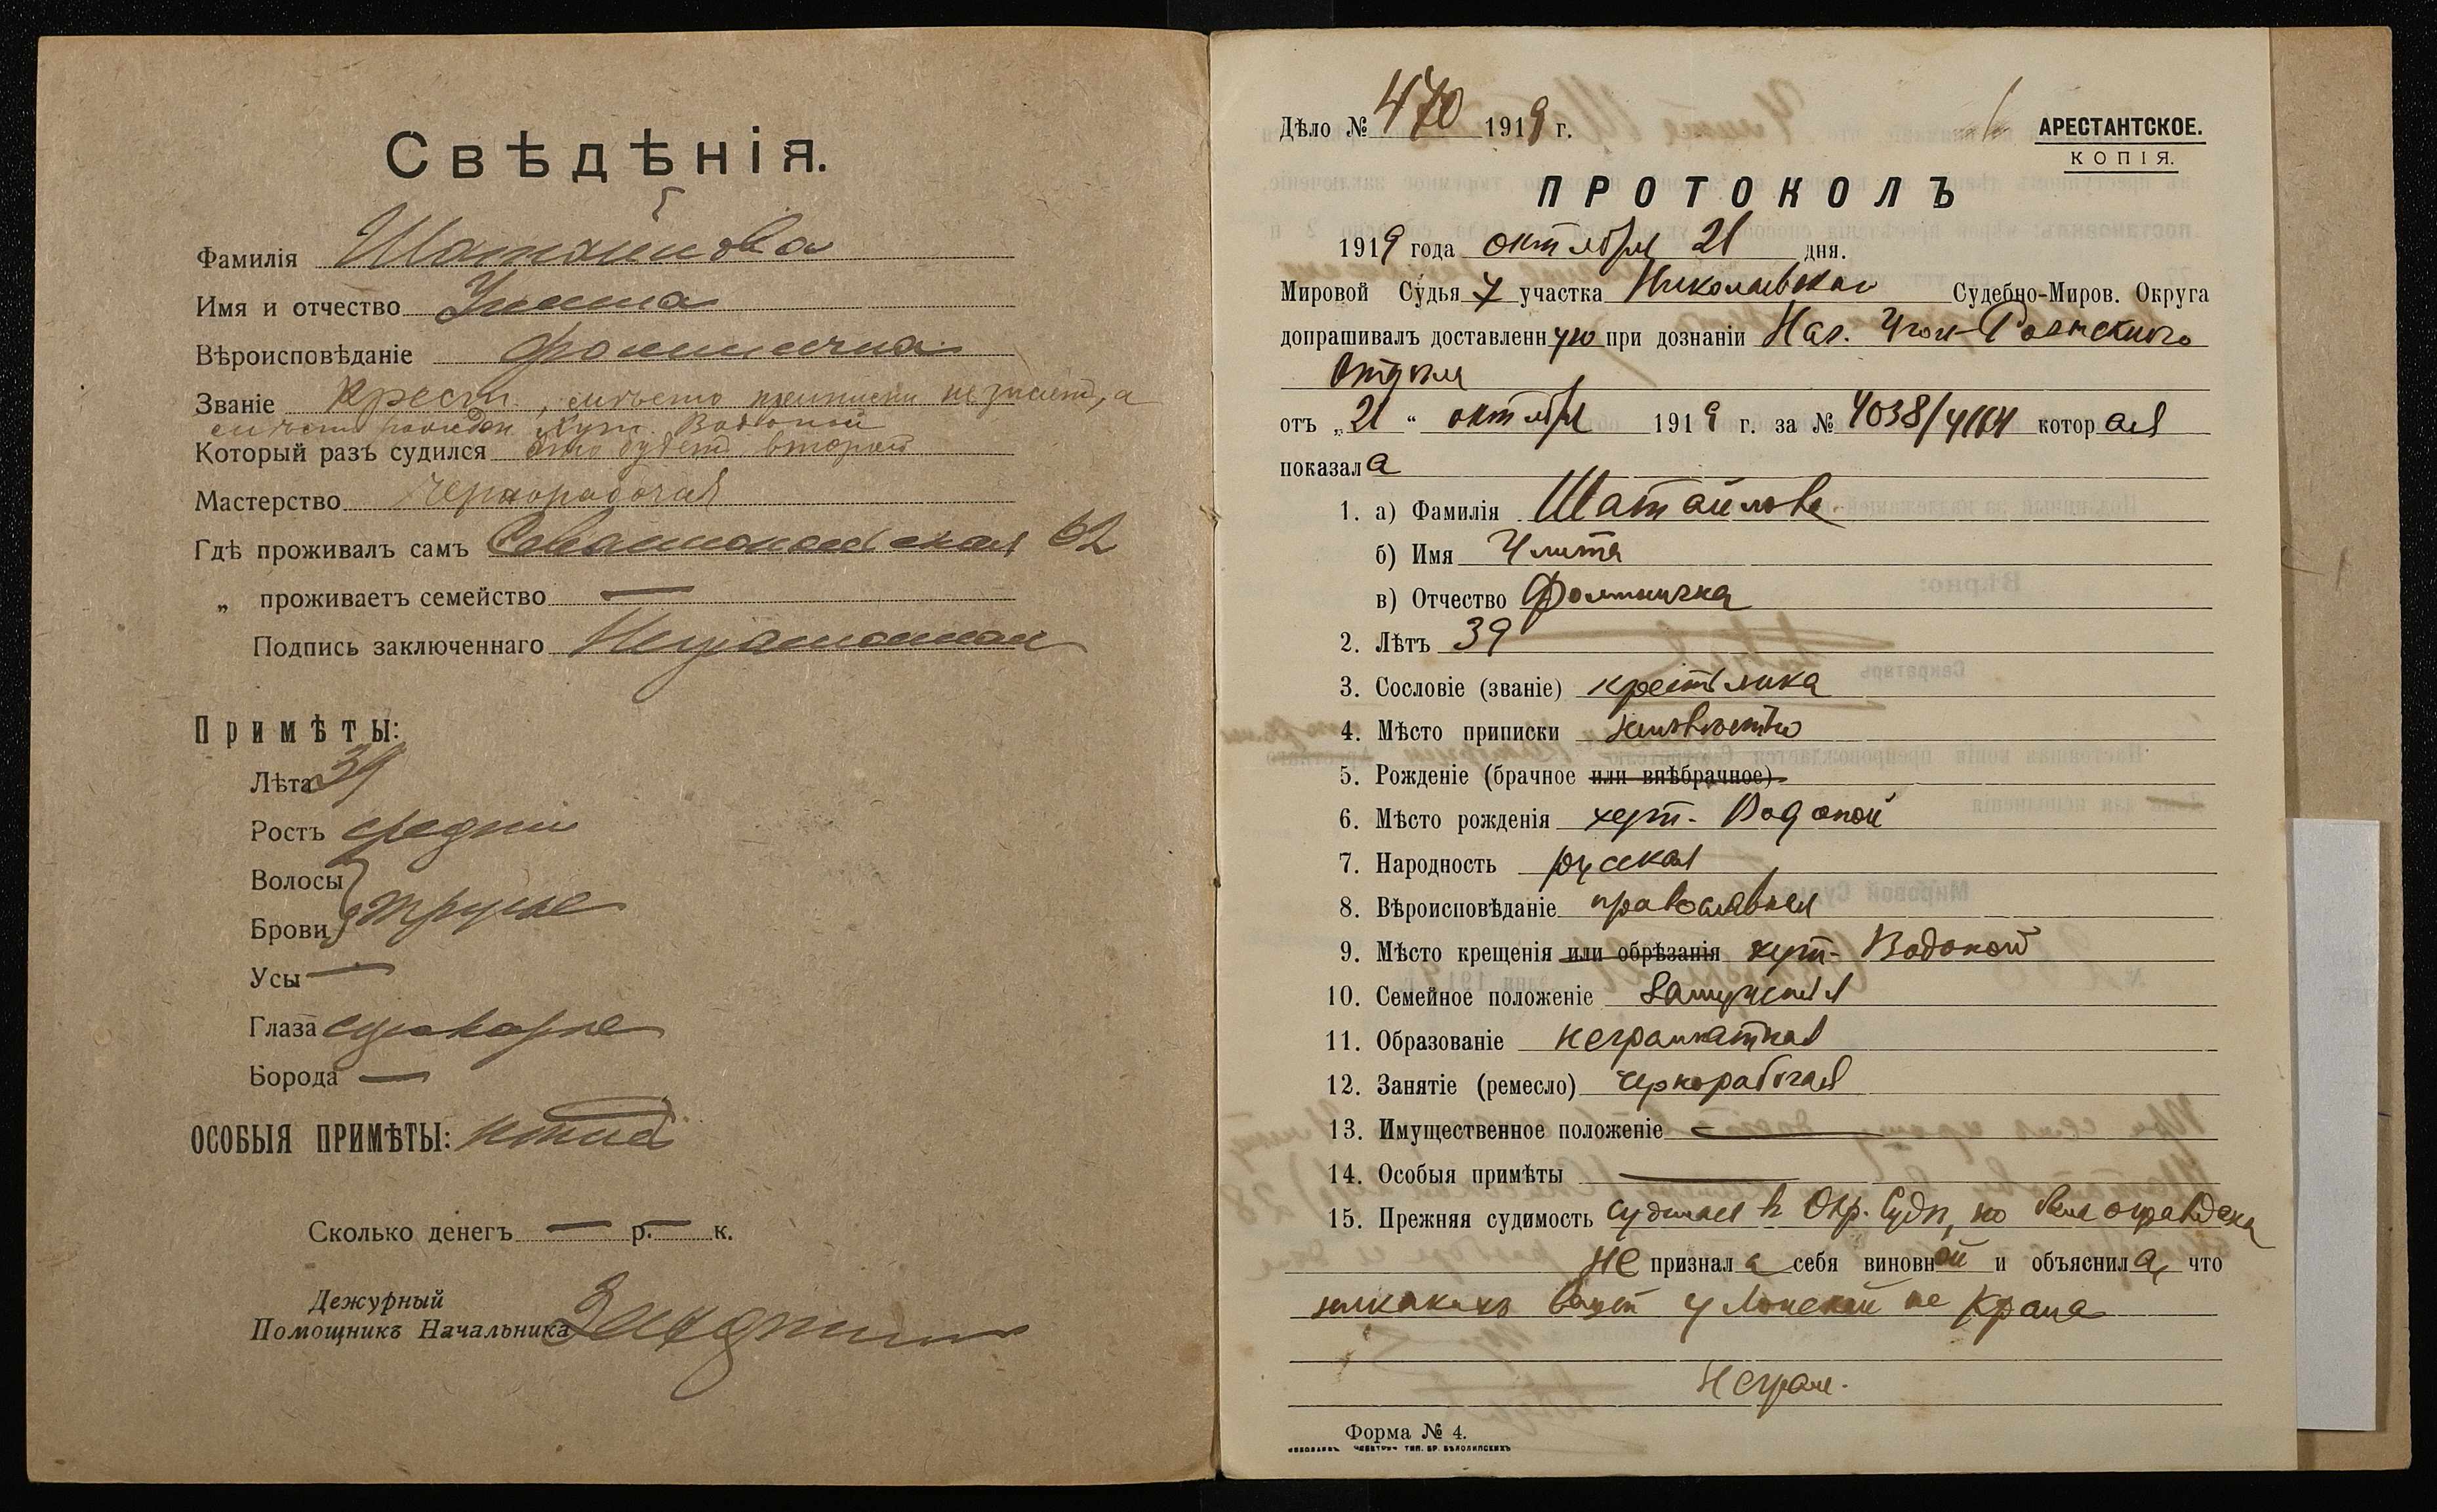 Свѣдѣнія.
Фамилія Шатайлова
Имя и отчество Улита
Вѣроисповѣданіе
Званіе Крест., мѣсто приписки не знает, а
Который разъ судился это будет второй
Мастерство Чернорабочая
Гдѣ проживалъ самъ 62
„ проживаетъ семейство —
Подпись заключеннаго Неграмотная
Примѣты:
Лѣта 39
Ростъ средній
Волосы
Брови русые
Усы —
Глаза
Борода —
ОСОБЫЯ ПРИМѢТЫ:
Сколько денегъ — р. — к.
Дежурный
Помощникъ Начальника
Дѣло № 470 1919 г.
АРЕСТАНТСКОЕ.
КОПІЯ.
ПРОТОКОЛЪ
1919 года октября 21 дня.
Мировой Судья 7 участка Николаевскаго Судебно-Миров. Округа
допрашивалъ доставленную при дознаніи Нач. Угол-Розыскного
Отдѣла
отъ „21“ октября 1919 г. за № 4038/4164 которая
показала
1. а) Фамилія Шатайлова
б) Имя Улита
в) Отчество
2. Лѣтъ 39
3. Сословіе (званіе) крестьянка
4. Мѣсто приписки неизвѣстно
5. Рожденіе (брачное или внѣбрачное)
6. Мѣсто рожденія хут. Водопой
7. Народность русская
8. Вѣроисповѣданіе православная
9. Мѣсто крещенія или обрѣзанія хут. Водопой
10. Семейное положеніе замужняя
11. Образованіе неграмотная
12. Занятіе (ремесло) чернорабочая
13. Имущественное положеніе —
14. Особыя примѣты —
15. Прежняя судимость судилась в Окр. Судѣ, но была оправдана
не признала себя виновной и объяснила, что
никакихъ вещей у не крала
Неграм.
Форма № 4.